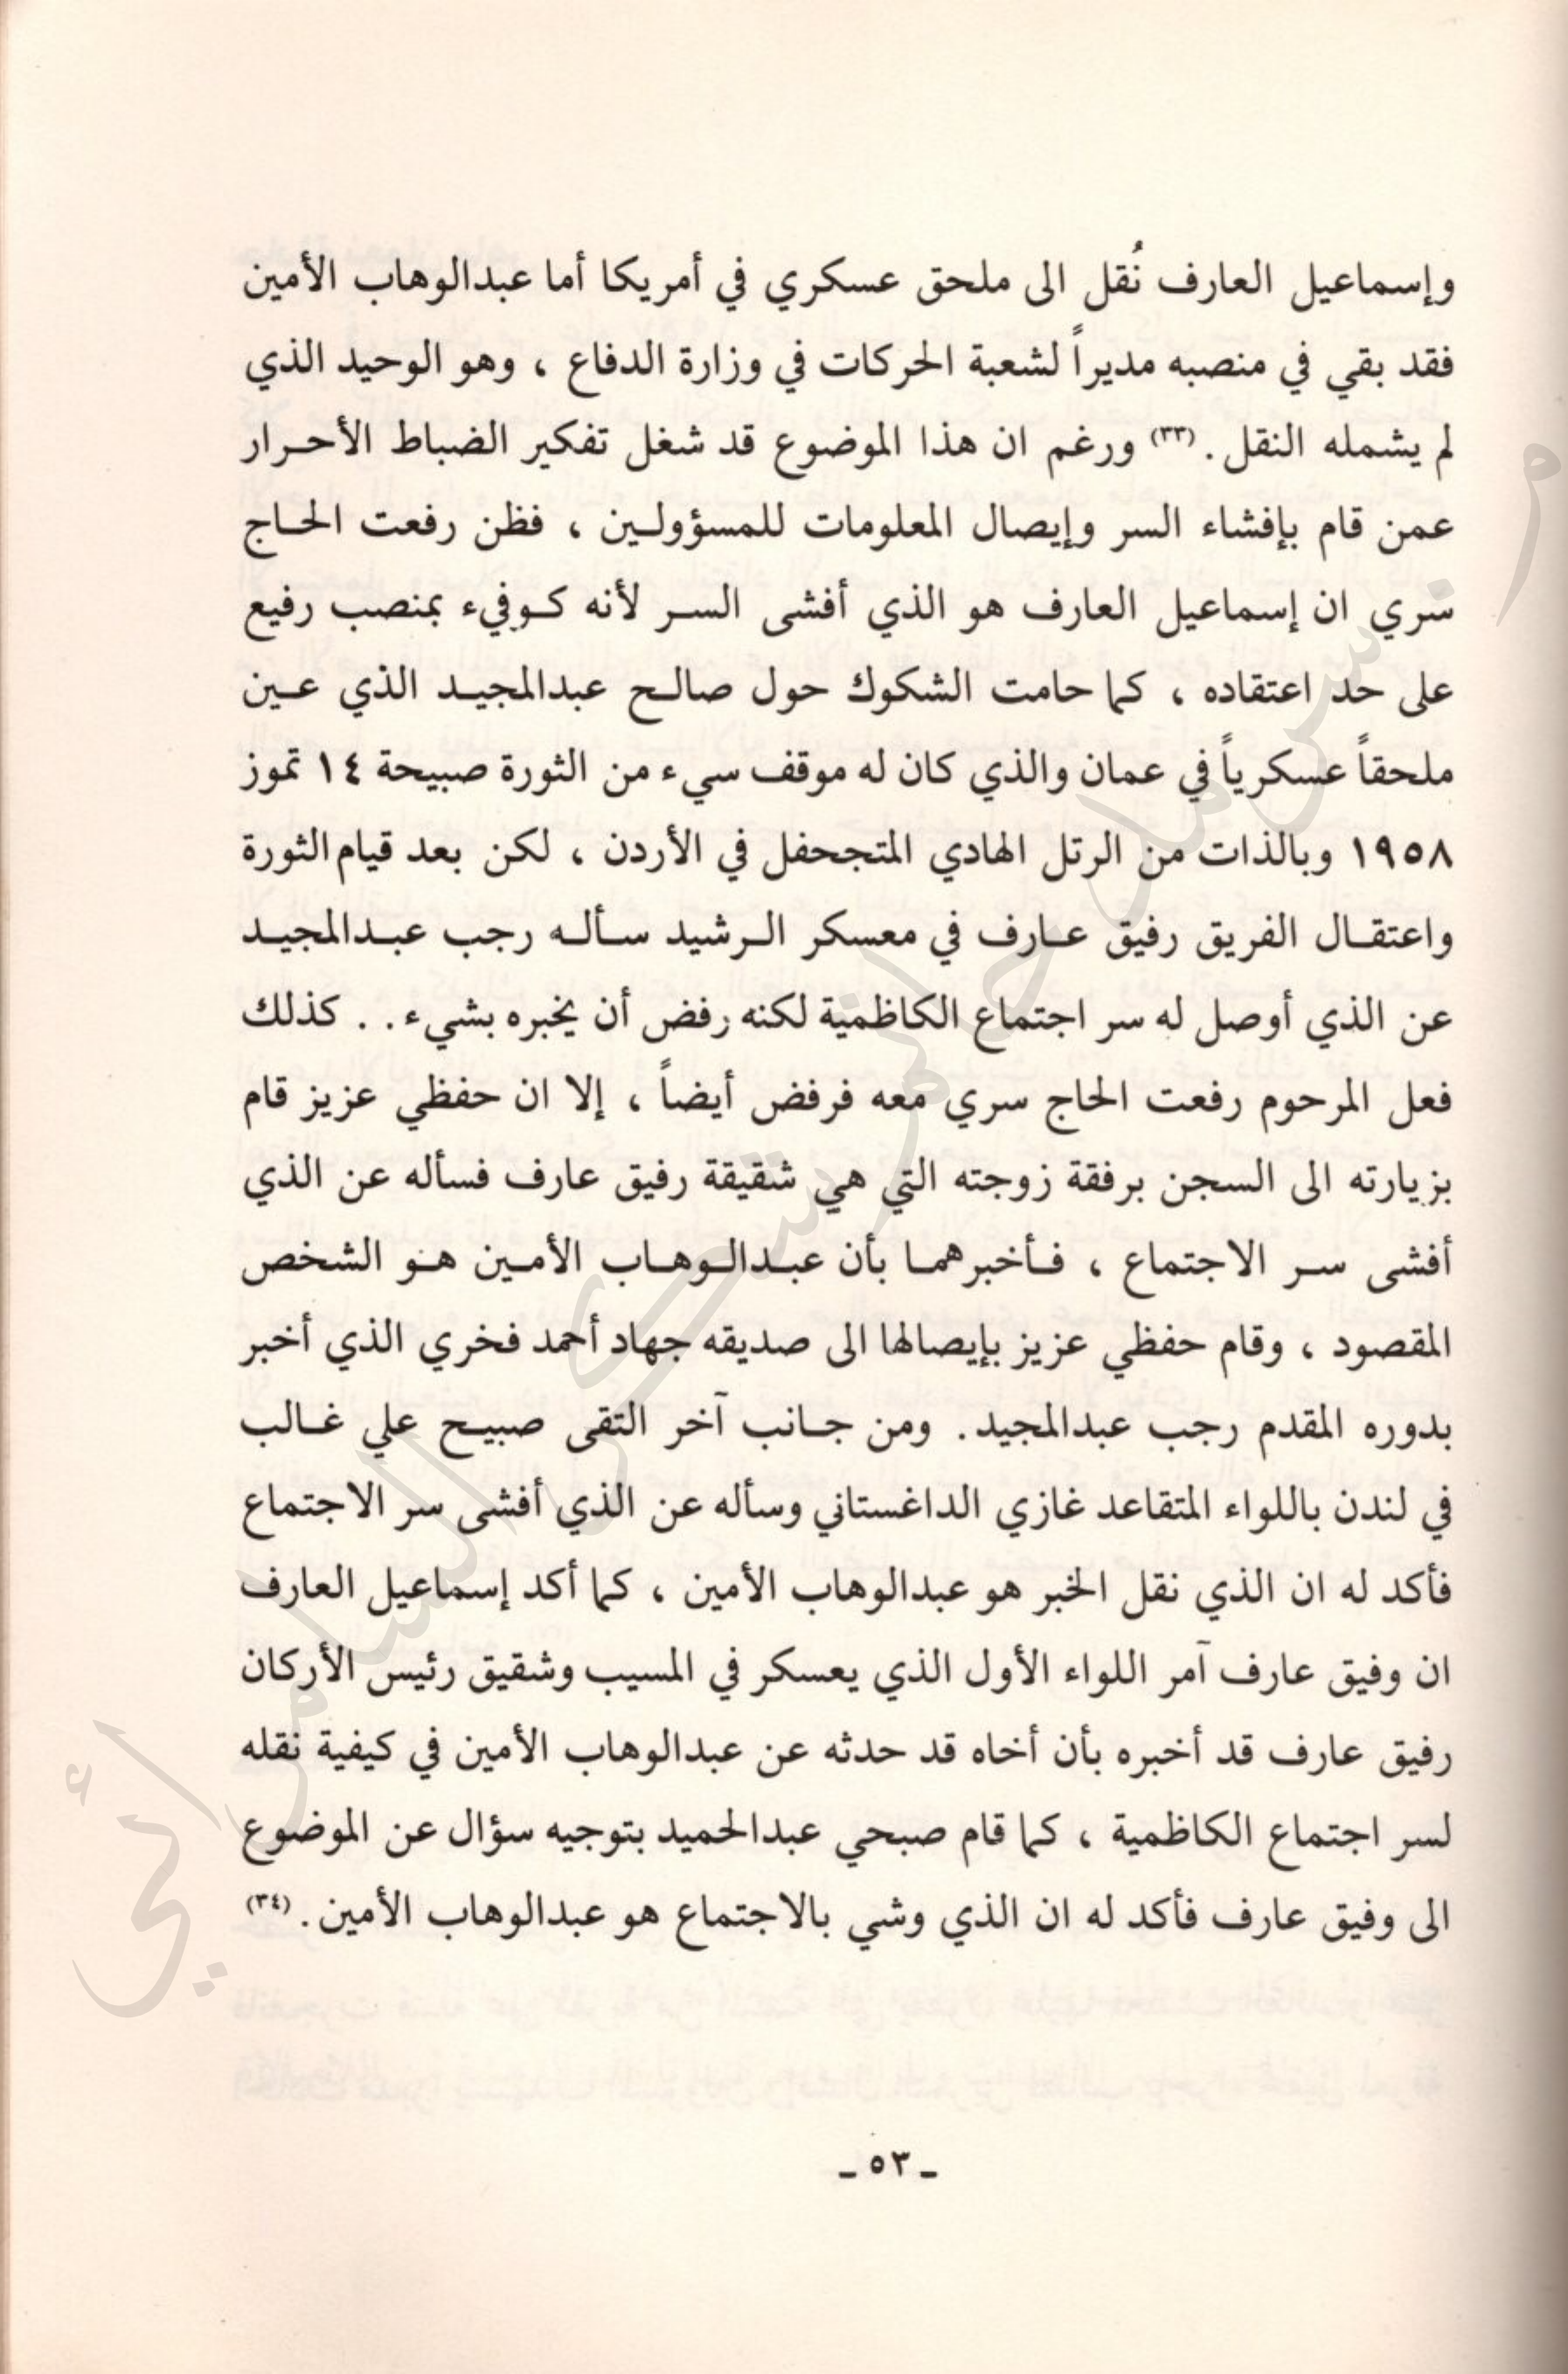 وإسماعيل العارف نُقل الى ملحق عسكري في أمريكا أما عبدالوهاب الأمين
فقد بقي في منصبه مديراً لشعبة الحركات في وزارة الدفاع ، وهو الوحيد الذي
لم يشمله النقل . (٣٣) ورغم ان هذا الموضوع قد شغل تفكير الضباط الأحـرار
عمن قام بإفشاء السر وإيصال المعلومات للمسؤولـين ، فظن رفعت الحـاج
سري ان إسماعيل العارف هو الذي أفشى السـر لأنه كـوفيء بمنصب رفيع
على حد اعتقاده ، كما حامت الشكوك حول صالـح عبدالمجيـد الذي عـين
ملحقاً عسكرياً في عمان والذي كان له موقف سيء من الثورة صبيحة ١٤ تموز
١٩٥٨ وبالذات من الرتل الهادي المتجحفل في الأردن ، لكن بعد قيام الثورة
واعتقـال الفريق رفيق عـارف في معسكر الـرشيد سـألـه رجب عبـدالمجيـد
عن الذي أوصل له سر اجتماع الكاظمية لكنه رفض أن يخبره بشيء . . كذلك
فعل المرحوم رفعت الحاج سري معه فرفض أيضاً ، إلا ان حفظي عزيز قام
بزيارته الى السجن برفقة زوجته التي هي شقيقة رفيق عارف فسأله عن الذي
أفشى سـر الاجتماع ، فـأخبرهمـا بأن عبـدالـوهـاب الأمـين هـو الشخص
المقصود ، وقام حفظي عزيز بإيصالها الى صديقه جهاد أحمد فخري الذي أخبر
بدوره المقدم رجب عبدالمجيد . ومن جـانب آخر التقى صبيـح علي غـالب
في لندن باللواء المتقاعد غازي الداغستاني وسأله عن الذي أفشى سر الاجتماع
فأكد له ان الذي نقل الخبر هو عبدالوهاب الأمين ، كما أكد إسماعيل العارف
ان وفيق عارف آمر اللواء الأول الذي يعسكر في المسيب وشقيق رئيس الأركان
رفيق عارف قد أخبره بأن أخاه قد حدثه عن عبدالوهاب الأمين في كيفية نقله
لسر اجتماع الكاظمية ، كما قام صبحي عبدالحميد بتوجيه سؤال عن الموضوع
الى وفيق عارف فأكد له ان الذي وشي بالاجتماع هو عبدالوهاب الأمين . (٣٤)
ـ ٥٣ ـ